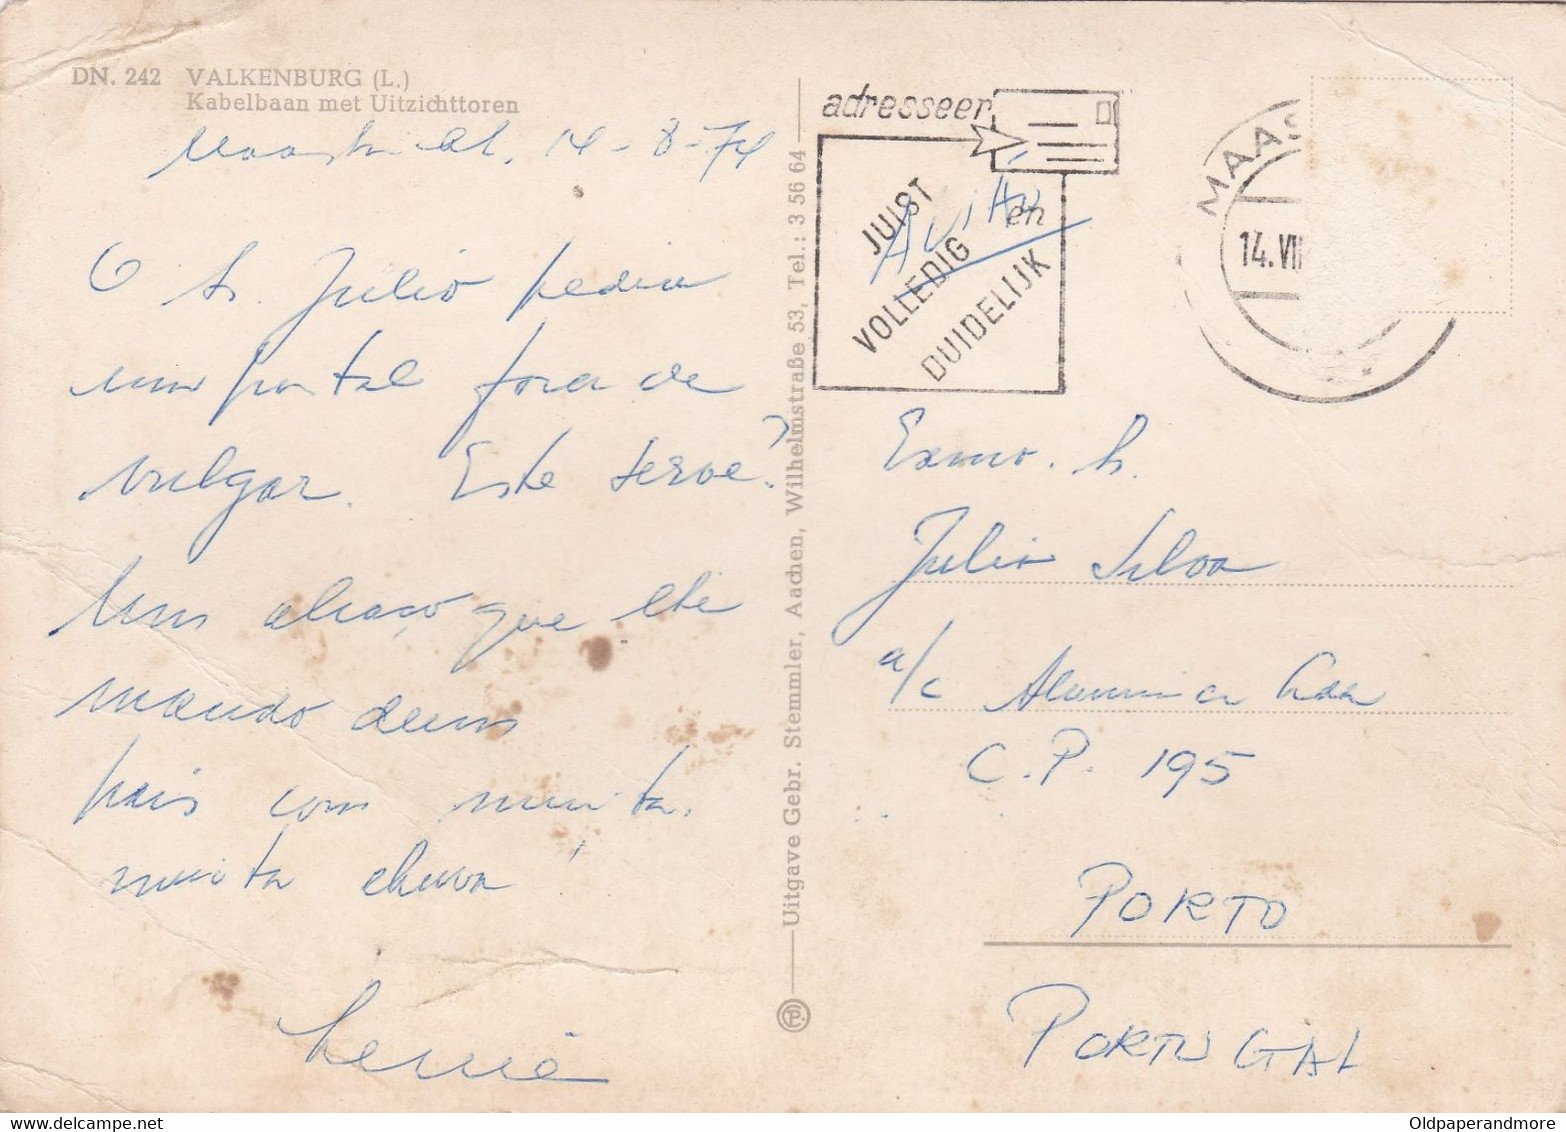 DN. 242 VALKENBURG (L.)
Kabelbaan met Uitzichttoren
Maastricht, 14-8-74
O Sr. Julio pedia
um postal fora de
vulgar. Este serve?
Um abraço que lhe
mando dum
pais com muita,
muita chuva!
Uitgave Gebr. Stemmler, Aachen, Wilhelmstraße 53, Tel.: 3 56 64
adresseer
JUIST
VOLLEDIG en
DUIDELIJK
Avião
MAAS
14.VII
Exmo. Sr.
Julio Silva
a/c
C.P. 195
PORTO
PORTUGAL
Oldpaperandmore